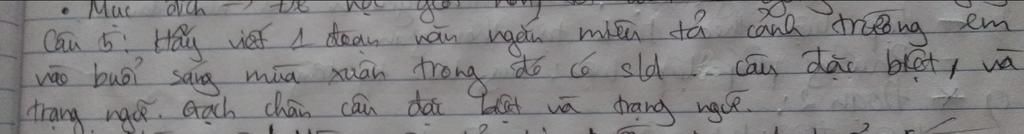 • Mục đích → Để học giỏi
Câu 5: Hãy viết 1 đoạn văn ngắn miêu tả cảnh trường em
vào buổi sáng mùa xuân trong đó có sld câu đặc biệt, và
trạng ngữ. Gạch chân câu đặc biệt và trạng ngữ.